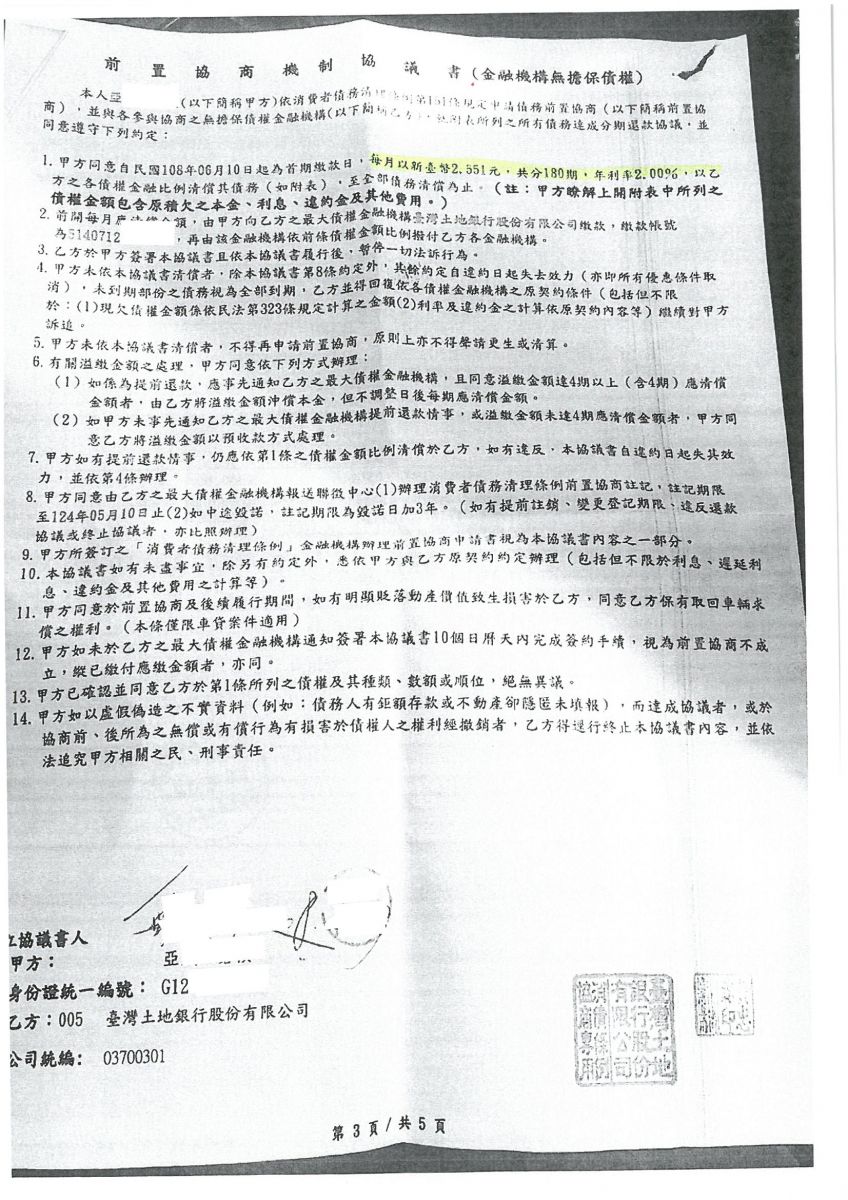 前置協商機制協議書(金融機構無擔保債權)
本人亞 (以下簡稱甲方)依消費者債務清理條例第151條規定申請債務前置協商(以下簡稱前置協
商),並與各參與協商之無擔保債權金融機構(以下簡稱乙方),就附表所列之所有債務達成分期還款協議,並
同意遵守下列約定:
1. 甲方同意自民國108年06月10日起為首期繳款日,每月以新臺幣2,551元,共分180期,年利率2.00%,以乙
方之各債權金融比例清償其債務(如附表),至全部債務清償為止。(註:甲方瞭解上開附表中所列之
債權金額包含原積欠之本金、利息、違約金及其他費用。)
2. 前開每月應清償金額,由甲方向乙方之最大債權金融機構臺灣土地銀行股份有限公司繳款,繳款帳號
為5140712 ,再由該金融機構依前條債權金額比例撥付乙方各金融機構。
3. 乙方於甲方簽署本協議書且依本協議書履行後,暫停一切法訴行為。
4. 甲方未依本協議書清償者,除本協議書第8條約定外,其餘約定自違約日起失去效力(亦即所有優惠條件取
消),未到期部份之債務視為全部到期,乙方並得回復依各債權金融機構之原契約條件(包括但不限
於:(1)現欠債權金額係依民法第323條規定計算之金額(2)利率及違約金之計算依原契約內容等)繼續對甲方
訴追。
5. 甲方未依本協議書清償者,不得再申請前置協商,原則上亦不得聲請更生或清算。
6. 有關溢繳金額之處理,甲方同意依下列方式辦理:
(1) 如係為提前還款,應事先通知乙方之最大債權金融機構,且同意溢繳金額達4期以上(含4期)應清償
金額者,由乙方將溢繳金額沖償本金,但不調整日後每期應清償金額。
(2) 如甲方未事先通知乙方之最大債權金融機構提前還款情事,或溢繳金額未達4期應清償金額者,甲方同
意乙方將溢繳金額以預收款方式處理。
7. 甲方如有提前還款情事,仍應依第1條之債權金額比例清償於乙方,如有違反,本協議書自違約日起失其效
力,並依第4條辦理。
8. 甲方同意由乙方之最大債權金融機構報送聯徵中心(1)辦理消費者債務清理條例前置協商註記,註記期限
至124年05月10日止(2)如中途毀諾,註記期限為毀諾日加3年。(如有提前註銷、變更登記期限、違反還款
協議或終止協議者,亦比照辦理)
9. 甲方所簽訂之「消費者債務清理條例」金融機構辦理前置協商申請書視為本協議書內容之一部分。
10. 本協議書如有未盡事宜,除另有約定外,悉依甲方與乙方原契約約定辦理(包括但不限於利息、遲延利
息、違約金及其他費用之計算等)。
11. 甲方同意於前置協商及後續履行期間,如有明顯貶落動產價值致生損害於乙方,同意乙方保有取回車輛求
償之權利。(本條僅限車貸案件適用)
12. 甲方如未於乙方之最大債權金融機構通知簽署本協議書10個日曆天內完成簽約手續,視為前置協商不成
立,縱已繳付應繳金額者,亦同。
13. 甲方已確認並同意乙方於第1條所列之債權及其種類、數額或順位,絕無異議。
14. 甲方如以虛假偽造之不實資料(例如:債務人有鉅額存款或不動產卻隱匿未填報),而達成協議者,或於
協商前、後所為之無償或有償行為有損害於債權人之權利經撤銷者,乙方得逕行終止本協議書內容,並依
法追究甲方相關之民、刑事責任。
立協議書人
甲方: 亞
身份證統一編號:G12
乙方:005 臺灣土地銀行股份有限公司
公司統編: 03700301
臺灣土地
銀行股份
有限公司
消債條例
協商專用
第3頁/共5頁